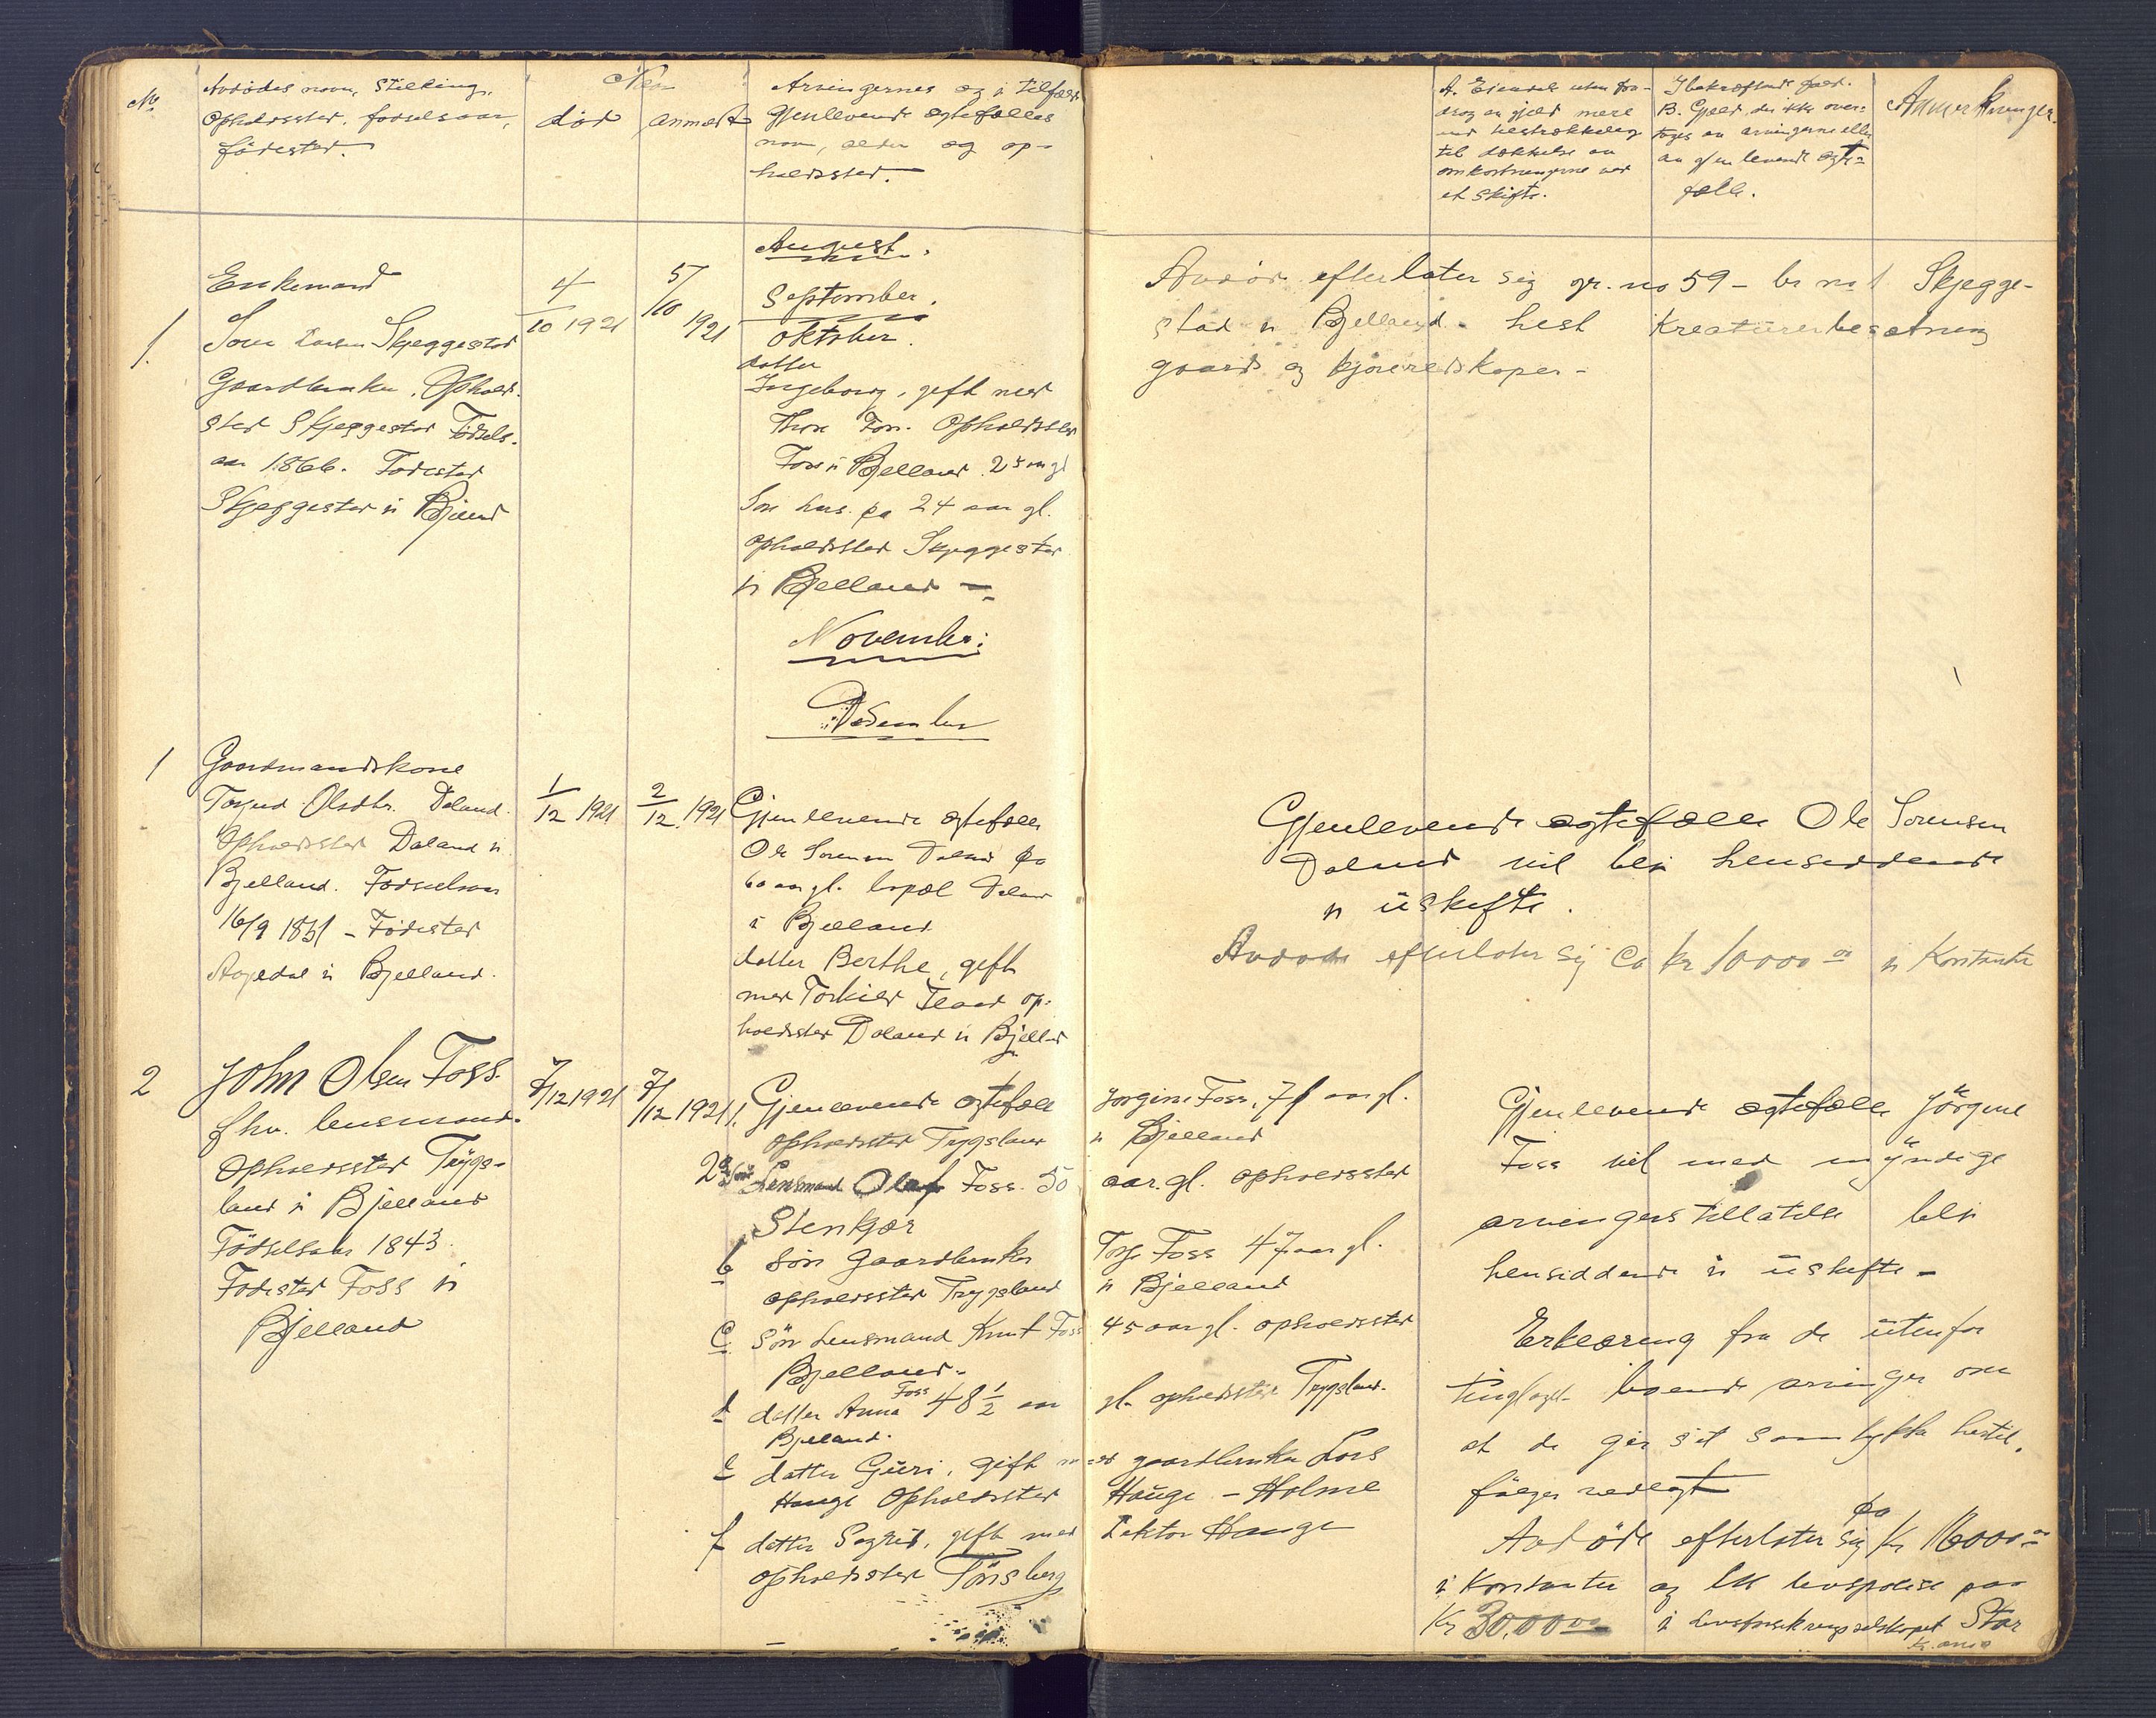 No
Avdødes navn, stilling,
opholdssted, fødselsaar,
fødested.
Naar
død
anmeldt
Arvingernes og i tilfælde
gjenlevende egtefælles
navn, alder og op-
holdssted.
A. Eiendele uten fra-
drag av gjæld mere
end tilstrækkelig
til dækkelse av
omkostningerne ved
et skifte.
I bekræftende fald.
B. Gjæld, der ikke over-
tages av arvingerne eller
av gjenlevende egte-
fælle.
Anmerkninger.
August.
September.
Oktober.
1.
Enkemand
Skjeggestad
Gaardbruker. Ophold-
sted Skjeggestad Fødsels-
aar 1866. Fødested
Skjeggestad i
4/10 1921
5/10 1921
datter
Ingeborg, gift med
Foss. Opholdssted
Foss i Bjelland.
24 aar gl.
opholdssted Skjeggestad
i Bjelland –
Avdøde efterlater sig gr. no 59 – br no 1 Skjegge-
stad i Bjelland. hest Kreaturerbesætning
gaards og kjøreredskaper –
November:
Desember
1
Gaardmandskone
Olsdtr. Daland.
Opholdssted Daland i
Bjelland. Fødselsaar
16/9 – Fødested
i Bjelland.
1/12 1921
2/12 1921
Gjenlevende egtefælle
Ole Sørensen Daland pa
60 aar gl. bopæl Daland
i Bjelland
datter Berthe, gift
med Torkild op-
holdssted Daland i Bjelland
Gjenlevende egtefælle Ole Sørensen
Daland vil bli hensiddende
i uskifte.
Avdøde efterlater sig ca kr 10000 00 i Kontanter
2
John Olsen Foss
fhv. lensmand.
Opholdssted Trygs-
land i Bjelland
Fødselsaar 1843.
Fødested Foss i
Bjelland
7/12 1921
7/12 1921
1. Gjenlevende egtefælle Jörgine Foss, 71 aar gl.
opholdssted Trygsland i Bjelland
2 a Søn Lensmand Olaf Foss. 50 aar. gl. opholdssted
Stenkjær
b søn Gaardbruker Foss 47 aar gl.
opholdssted Trygsland i Bjelland
c. søn Lensmand Knut Foss 45 aar gl. opholdssted
Bjelland.
d datter Anna Foss 48 1/2 aar gl. opholdssted Trygsland.
Bjelland.
e datter Guri, gift med gaardbruker Lars
Hauge opholdssted Hauge – Holme
f datter Sigrid, gift med Lektor Hauge
opholdssted Tönsberg
Gjenlevende egtefælle Jörgine
Foss vil med myndige
arvingers tillatelse bli
hensiddende i uskifte –
Erklæring fra de utenfor
tinglaget boende arvinger om
at de gir sit samtykke hertil,
følger vedlagt
Avdøde efterlater sig pa Kr 16000 00
i Kontanter og en livspolise paa
Kr 30.000 00 i Livsforsikringsselskapet Star